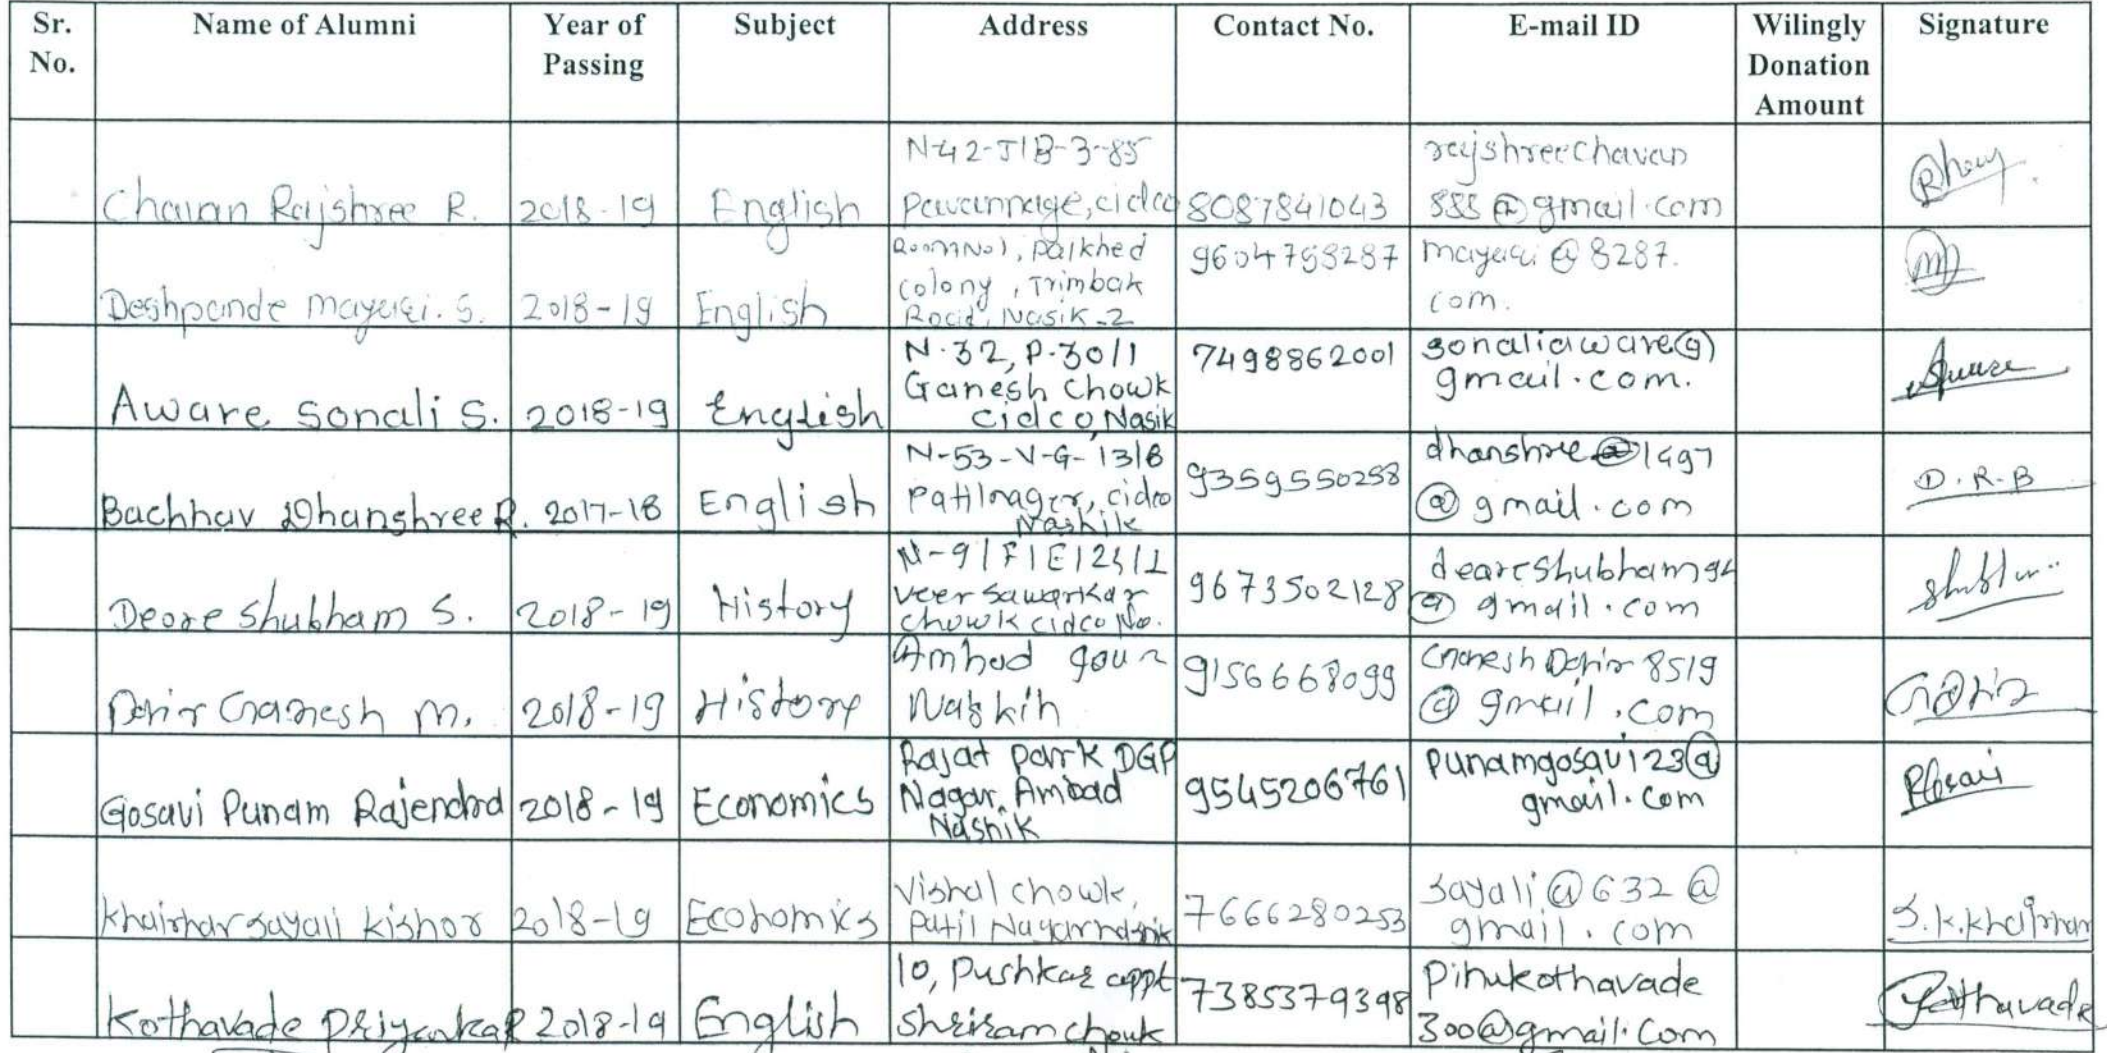 Sr. No. Name of Alumni Year of Passing Subject Address Contact No. E-mail ID Wilingly Donation Amount Signature
Chavan Rajshree R. 2018-19 English N-42-J1B-3-85 Pavannage, cidco 8087841043 rajshreechavan 888@gmail.com
Deshpande mayuri. S. 2018-19 English Room No 1, palkhed colony, Trimbak Road, Nasik-2 9604753287 mayuri@8287. com. M
Aware Sonali S. 2018-19 English N.32, P.30/1 Ganesh chowk Cidco, Nasik 7498862001 sonaliaware@ gmail.com. Aware
Bachhav Dhanshree R. 2017-18 English N-53-V-G-13/8 Patilnager, cidco Nashik 9359550258 dhanshree@1497 @gmail.com D.R.B
Deore Shubham S. 2018-19 History N-9/F/E/24/1 veer sawarkar chowk cidco No. 9673502128 deoreshubham94 @gmail.com
Dorir Ganesh M. 2018-19 History Ambad goun Nashik 9156668099 Ganesh Dorir 8519 @gmail.com
Gosavi Punam Rajendra 2018-19 Economics Rajat park DGP Nagar, Ambad Nashik 9545206761 punamgosavi123@ gmail.com
Khairnar sayali kishor 2018-19 Economics Vishal chowk, Patil Nagar nashik 7666280253 sayali@632@ gmail.com S.K.Khairnar
Kothavade Priyanka R 2018-19 English 10, Pushkar appt Shriram chouk 7385379398 Pihukothavade 300@gmail.com Kothavade